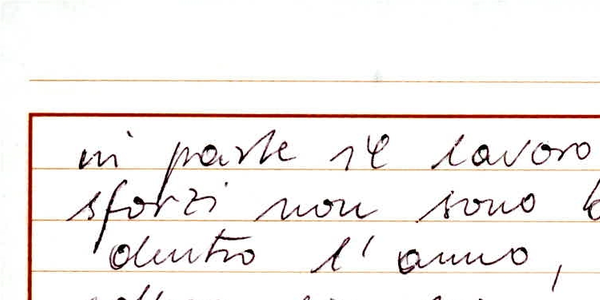 in parte il lavoro
sforzi non sono
dentro l'anno,